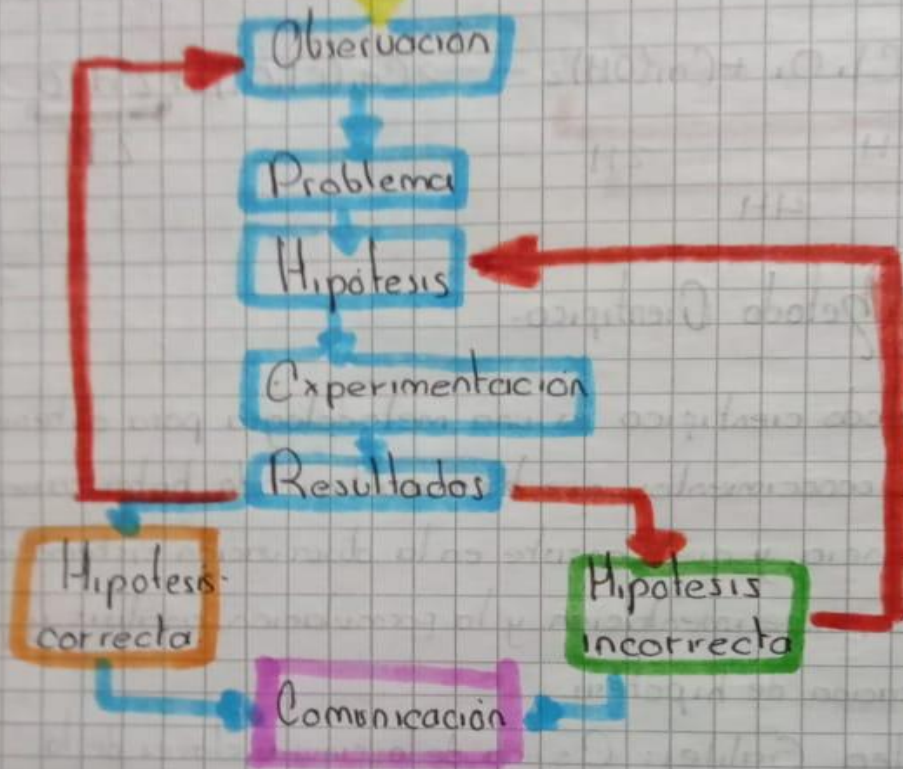 Observación
Problema
Hipótesis
Experimentación
Resultados
Hipotesis
correcta.
Hipotesis
incorrecta
Comunicación